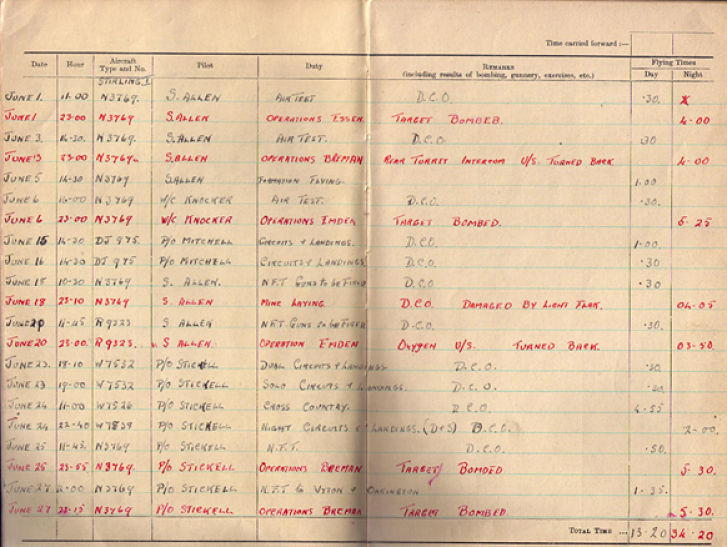 Time carried forward :—
Date Hour Aircraft Type and No. Pilot Duty Remarks (including results of bombing, gunnery, exercises, etc.) Flying Times Day Night
STIRLING I
JUNE 1. 11.00 N3769. S. ALLEN AIR TEST D.C.O. .30.
JUNE 1 23.00 N3769 S. ALLEN OPERATIONS ESSEN. TARGET BOMBED. 4-00
JUNE 3. 16-30. N3769. S. ALLEN AIR TEST. D.C.O. 30
JUNE 3 23.00 N3769. S. ALLEN OPERATIONS BREMAN REAR TURRET INTERCOM U/S. TURNED BACK 4-00
JUNE 5 14-30 N3769 S. ALLEN FORMATION FLYING. 1.00
JUNE 6 16-00 N3769 W/C KNOCKER AIR TEST. D.C.O. .30.
JUNE 6 23-00 N3769 W/C KNOCKER OPERATIONS EMDEN TARGET BOMBED. 5-25
JUNE 15 14-30 P/O MITCHELL CIRCUITS & LANDINGS. D.C.O. 1-00.
JUNE 16 14-30 P/O MITCHELL CIRCUITS & LANDINGS D.C.O. .30
JUNE 18 10-30 N3769 S. ALLEN. N.F.T GUNS to be FIRED D.C.O .30
JUNE 18 23-10 N3769 S. ALLEN MINE LAYING. D.C.O. DAMAGED BY LIGHT FLAK. 04-05
JUNE 20 11-45 R9323 S ALLEN N.F.T. GUNS to be FIRED D.C.O. .30.
JUNE 20 23.00. R9323.. S. ALLEN. OPERATION EMDEN OXYGEN U/S. TURNED BACK. 03-50.
JUNE 23. 18-10 W7532 P/O STICKELL DUAL CIRCUITS & LANDINGS D.C.O.
JUNE 23 19-00 W7532 P/O STICKELL SOLO CIRCUITS & LANDINGS. D.C.O.
JUNE 24 11-00 W7526 P/O STICKELL CROSS COUNTRY. D.C.O. 4-55
JUNE 24 22-40 W7839 P/O STICKELL NIGHT CIRCUITS & LANDINGS. (D+S) D.C.O. 2-00.
JUNE 25 11-45 N3769 P/O STICKELL N.F.T. D.C.O. .50.
JUNE 25 23-55 N3769. P/O STICKELL OPERATIONS BREMAN TARGET BOMBED 5-30.
JUNE 27 2-00 N3769 P/O STICKELL N.F.T to WYTON & OAKINGTON 1-35.
JUNE 27 23-15 N3769 P/O STICKELL OPERATIONS BREMAN TARGET BOMBED. 5-30.
TOTAL TIME ... 13-20 34-20